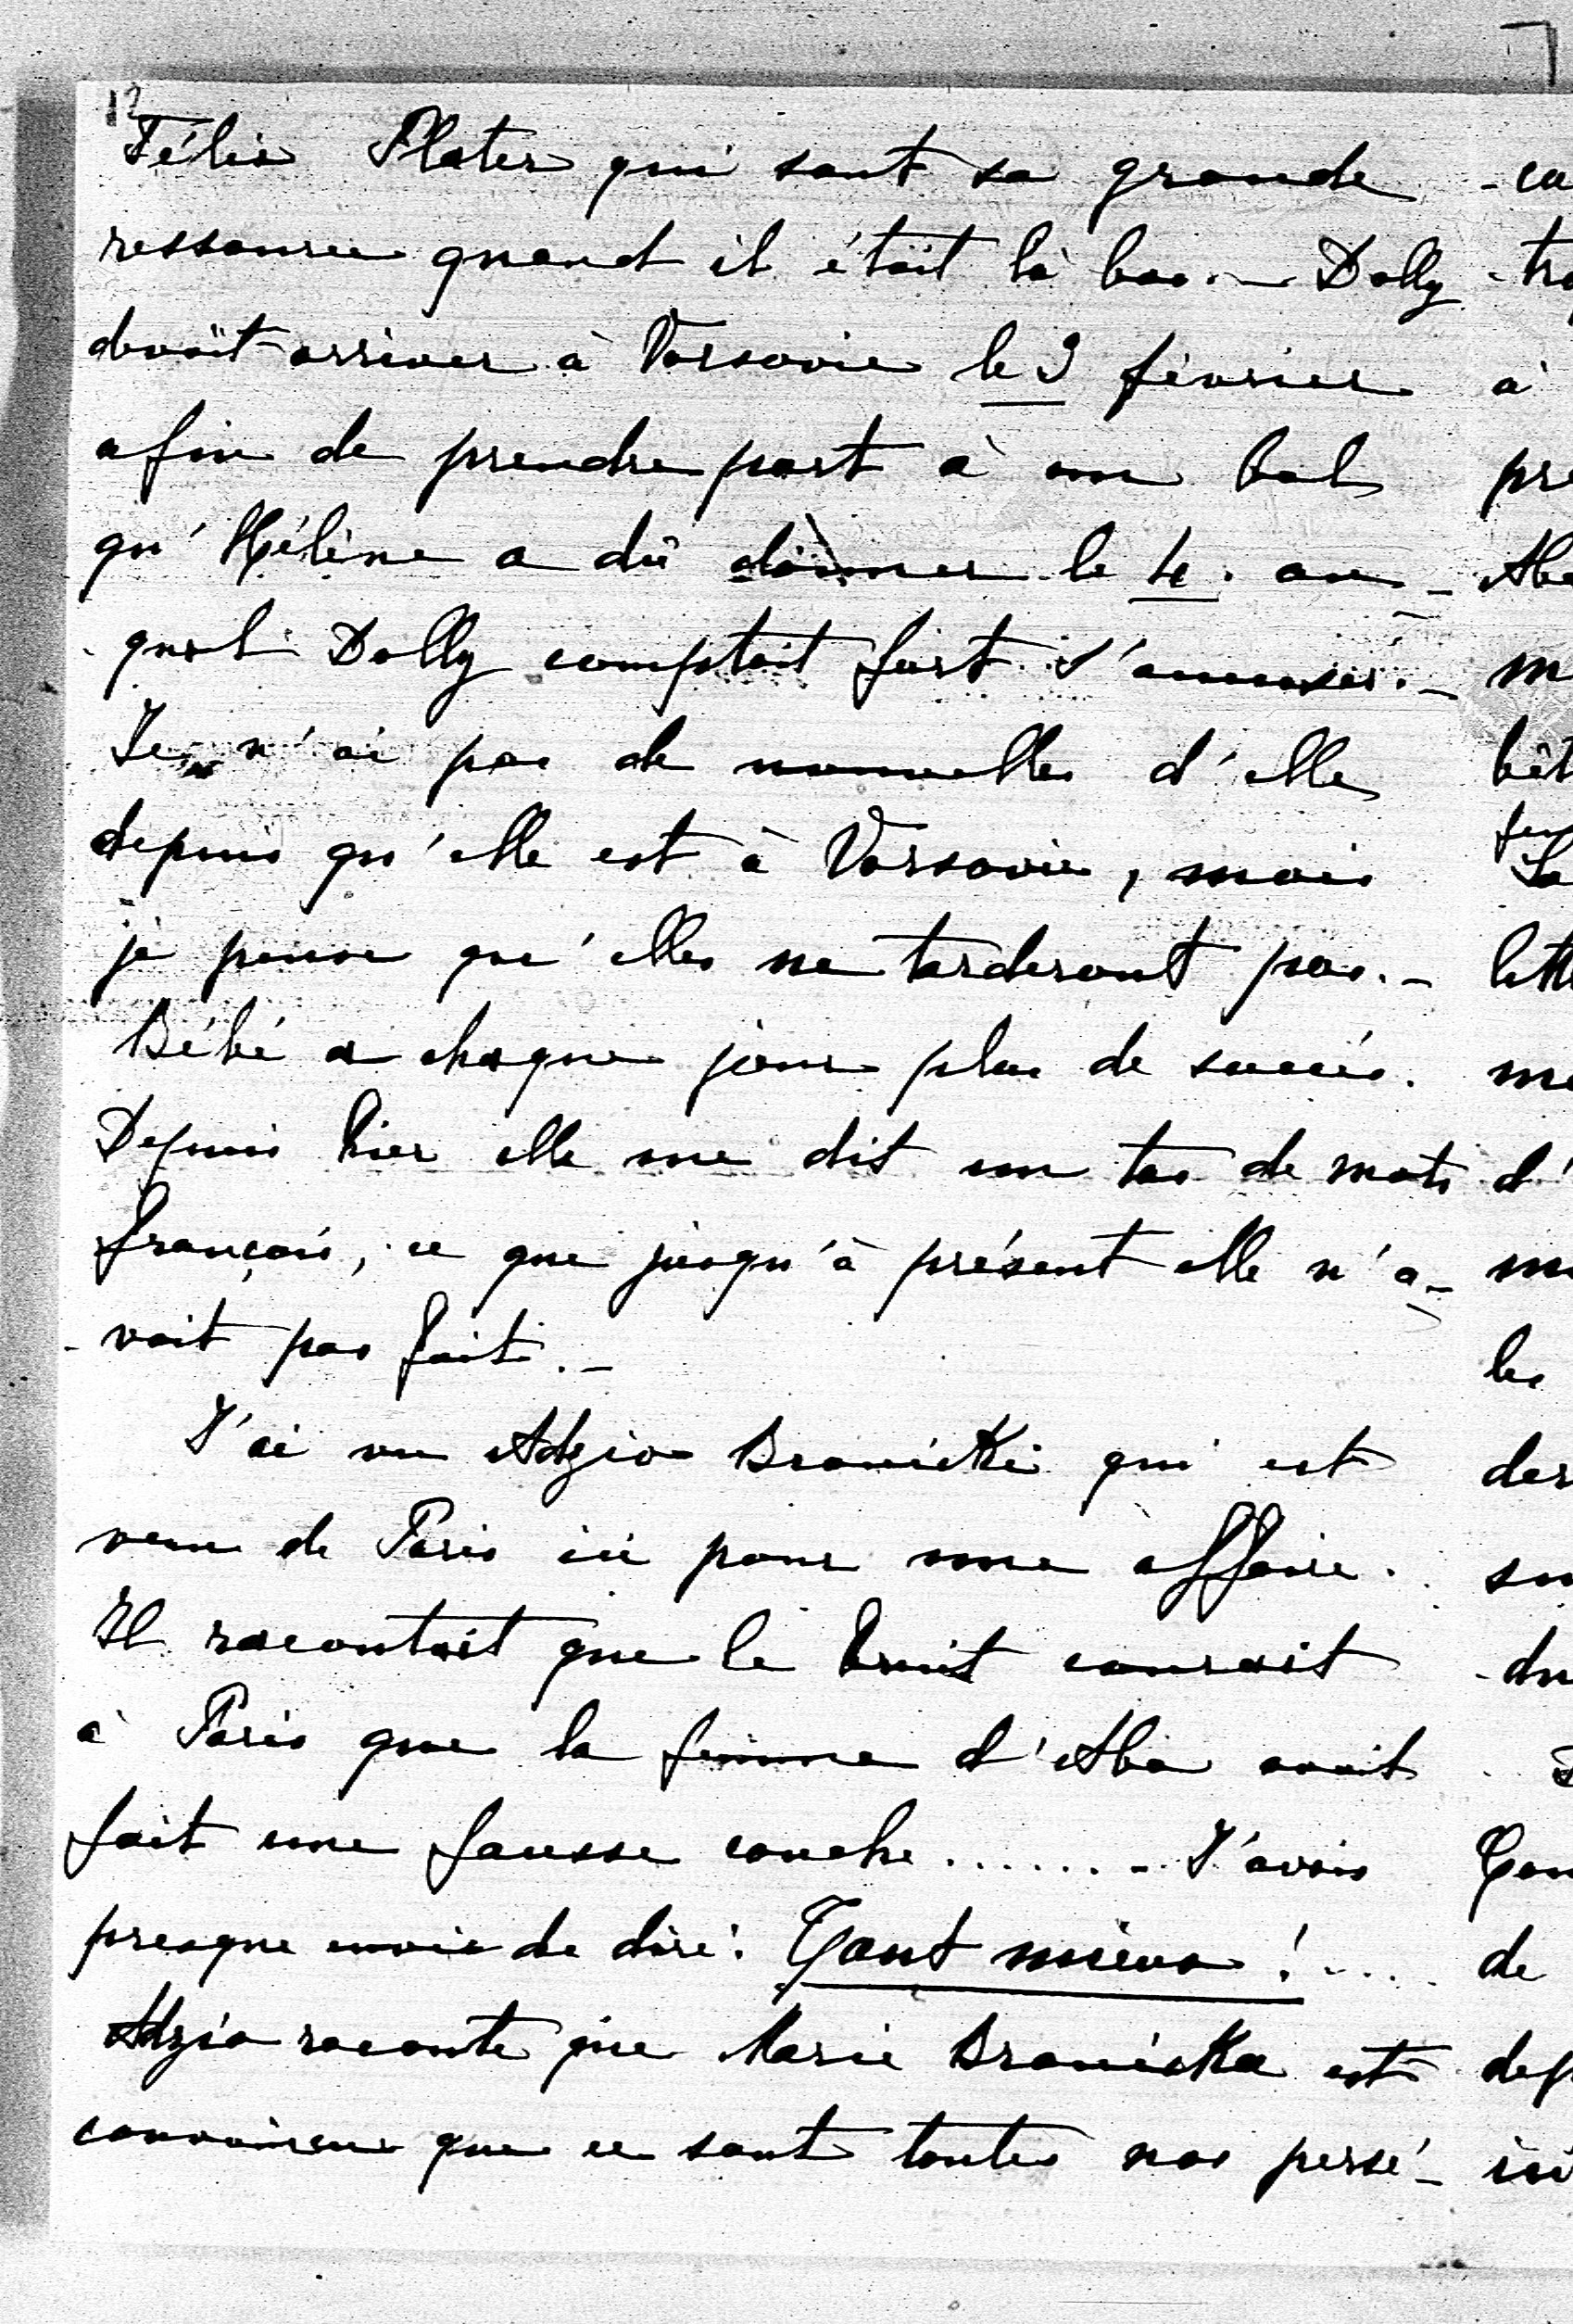 12
Félix Plater qui sont sa grande
ressource quand il était là bas. — Dolly
devait arriver à Varsovie le 3 février
afin de prendre part à un bal
qu'Hélène a dû donner le 4. au-
-quel Dolly comptait fort s'amuser. —
Je n'ai pas de nouvelles d'elle
depuis qu'elle est à Varsovie, mais
je pense qu'elles ne tarderont pas. —
Bébé a chaque jour plus de succès.
Depuis hier elle me dit un tas de mots
français, ce que jusqu'à présent elle n'a-
-vait pas fait. —
J'ai vu Adzio Branicki qui est
venu de Paris ici pour une affaire.
Il racontait que le bruit courait
à Paris que la femme d'Aba avait
fait une fausse couche ....... - J'avais
presque envie de dire: Tant mieux! ....
Adzio raconte que Marie Branicka est
convaincue que ce sont toutes nos persé-